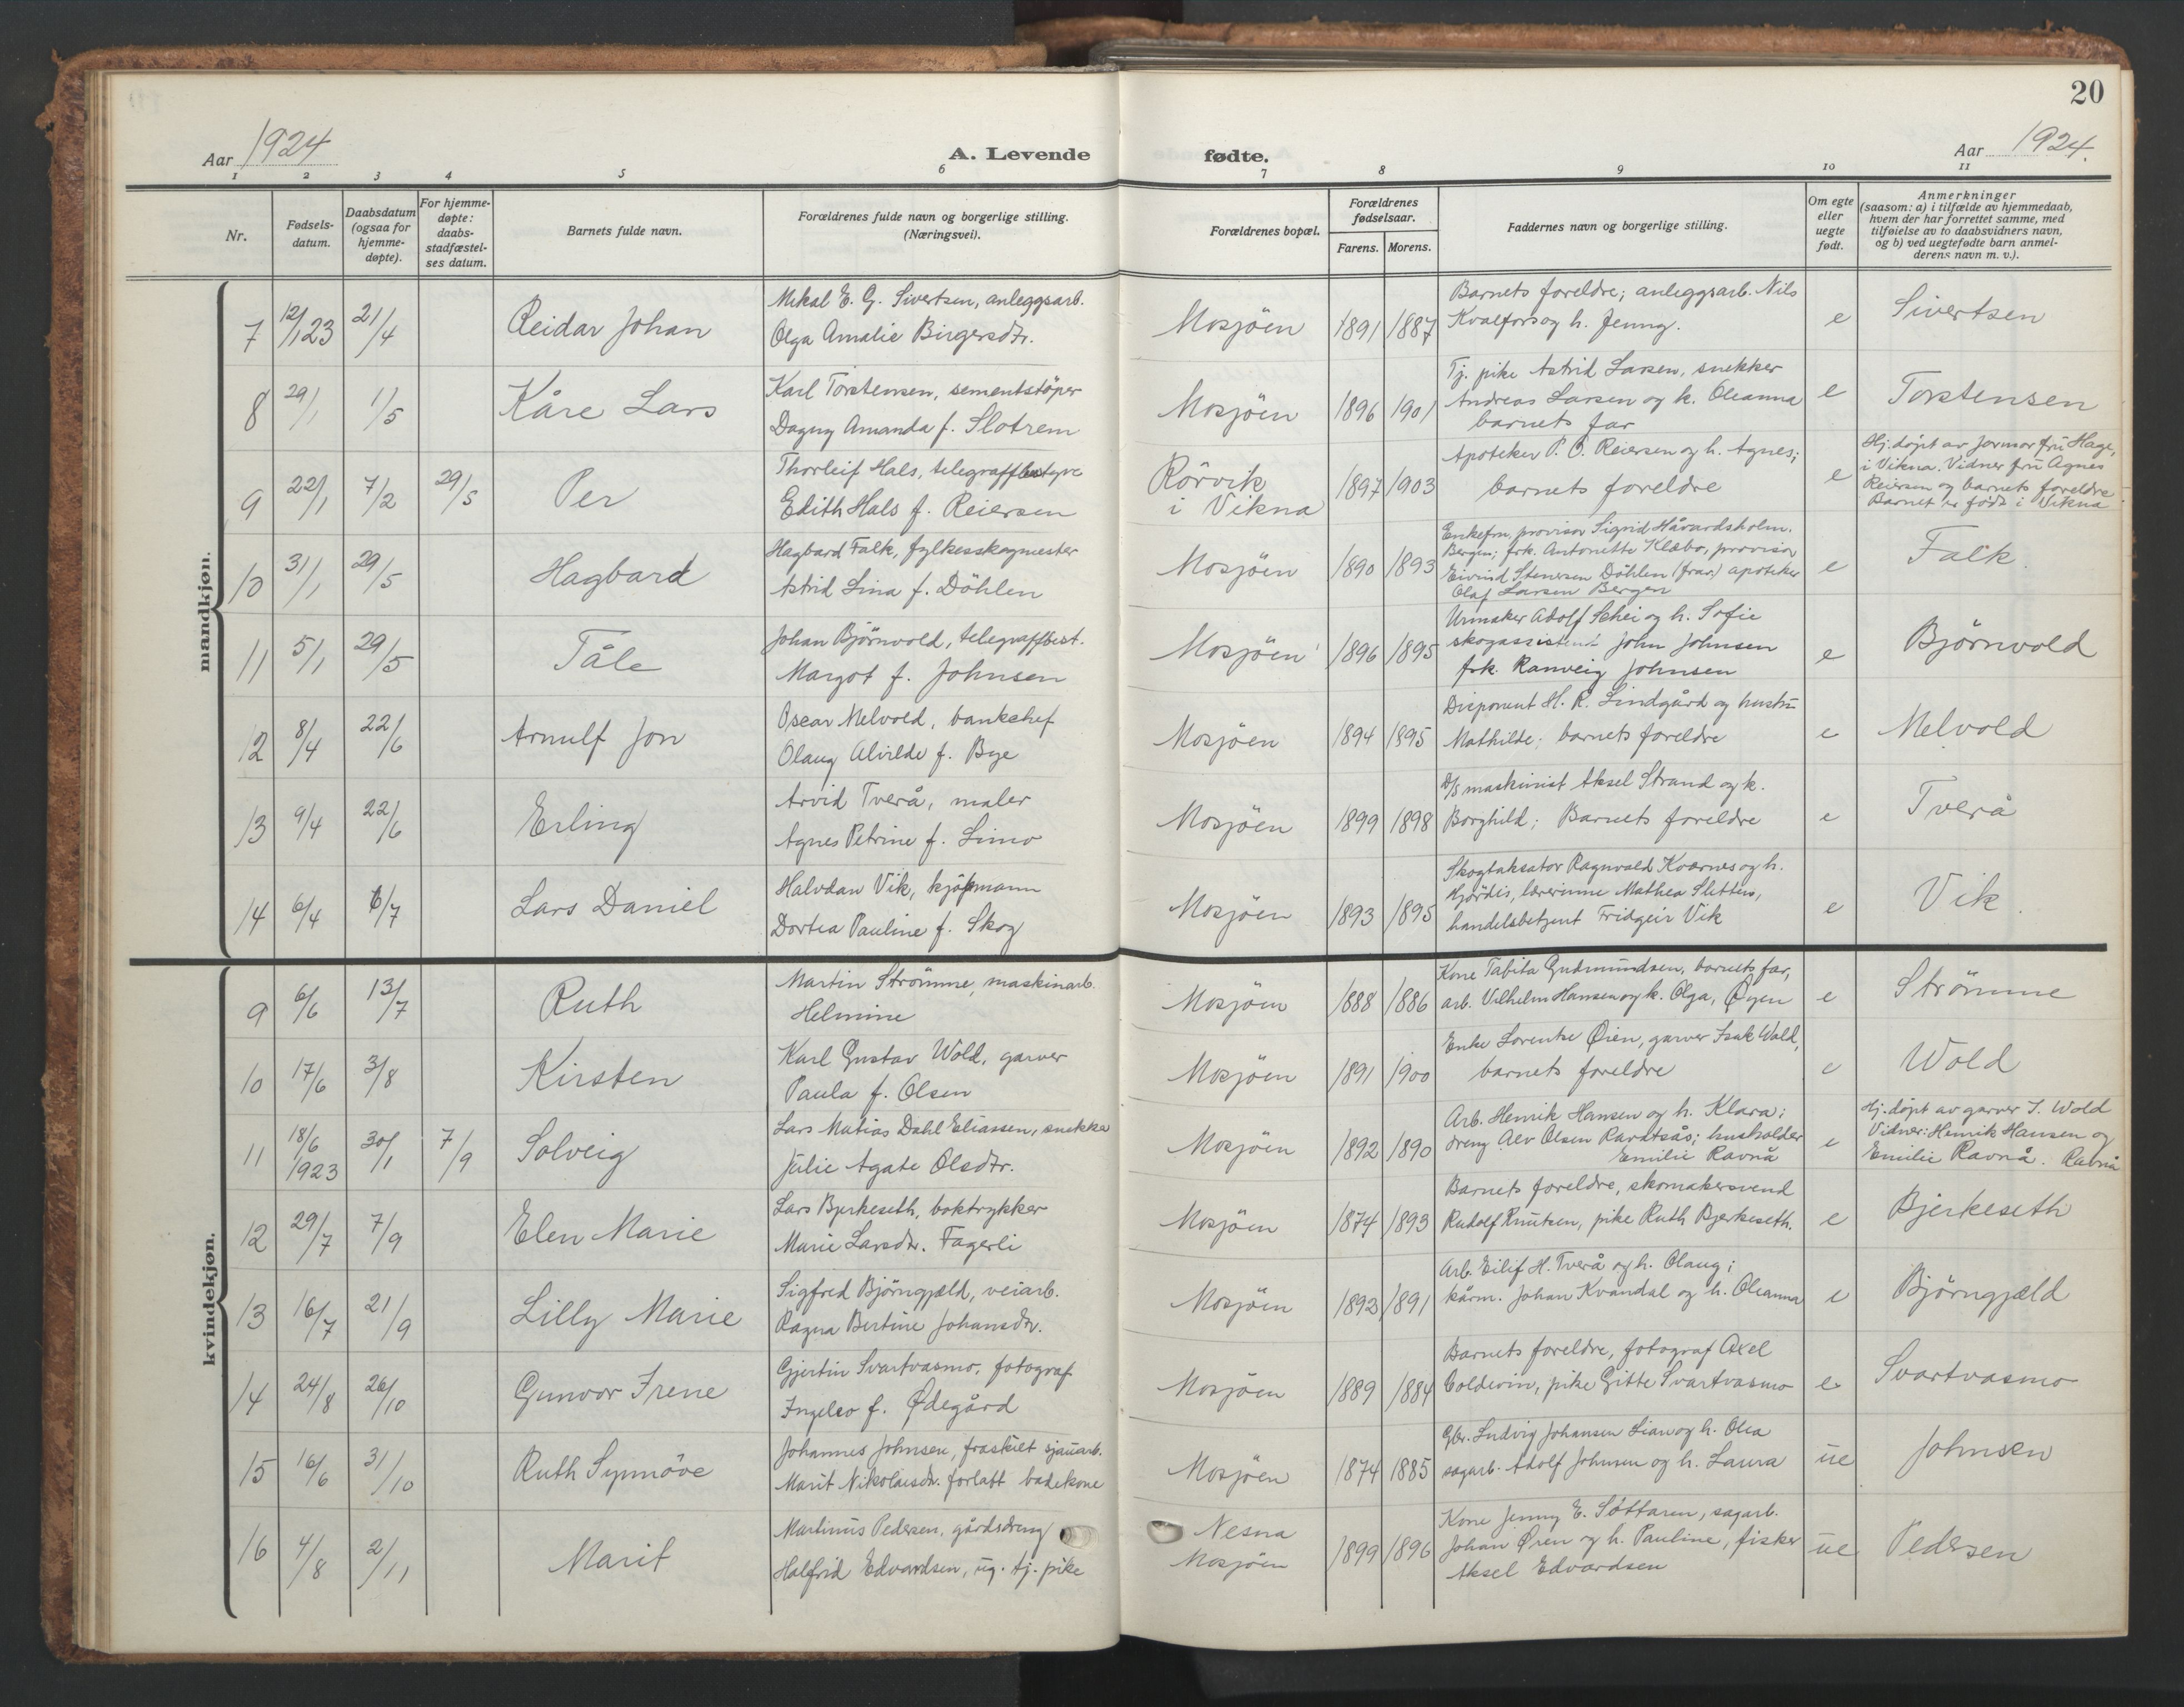 20
Aar 1924
A. Levende fødte.
Aar 1924.
1 2 3 4 5 6 7 8 9 10 11
Nr.
Fødsels-
datum.
Daabsdatum
(ogsaa for
hjemme-
døpte).
For hjemme-
døpte:
daabs-
stadfæstel-
ses datum.
Barnets fulde navn.
Forældrenes fulde navn og borgerlige stilling.
(Næringsvei).
Forældrenes bopæl.
Forældrenes
fødselsaar.
Farens. Morens.
Faddernes navn og borgerlige stilling.
Om egte
eller
uegte
født.
Anmerkninger
(saasom: a) i tilfælde av hjemmedaab,
hvem der har forrettet samme, med
tilføielse av to daabsvidners navn,
og b) ved uegtefødte barn anmel-
derens navn m. v.).
mandkjøn.
7 12/1 23 21/4 Reidar Johan
Mikal E. G. Sivertsen, anleggsarb.
Olga Amalie Birgersdtr.
Mosjöen 1891 1887
Barnets foreldre; anleggsarb. Nils
Kvalfors og h. Jenny.
e Sivertsen
8 29/1 1/5 Kåre Lars
Karl Torstensen, sementstöper
Dagny Amanda f. Slotrem
Mosjöen 1896 1901
Tj. pike Astrid Larsen, snekker
Andreas Larsen og h. Oleanna
barnets far
e Torstensen
9 22/1 7/2 29/5 Per
Thorleif Hals, telegraffbestyre
Edith Hals f. Reiersen
Rörvik
i Vikna
1897 1903
Apoteker P. O. Reiersen og h. Agnes;
barnets foreldre
e
Hj. döpt av jormor fru Hage,
i Vikna. Vidner fru Agnes
Reiersen og barnets foreldre
Barnet er född i Vikna
10 31/1 29/5 Hagbard
Hagbard Falk, fylkesskogmester
Astrid Lina f. Döhlen
Mosjöen 1890 1893
Enkefru provisor Sigrid Håvardsholm.
Bergen; frk. Antonette Klæbo, provisor
Eivind Stenersen Döhlen (frav.) apoteker
Olaf Larsen Bergen
e Falk.
11 5/1 29/5 Tåle
Johan Björnvold, telegraffbest.
Margot f. Johnsen
Mosjöen 1896 1895
Urmaker Adolf Schei og h. Sofie
skogassistent John Johnsen
frk. Ranveig Johnsen
e Björnvold
12 8/4 22/6 Arnulf Jon
Oscar Melvold, bankchef
Olaug Alvilde f. Bye
Mosjöen 1894 1895
Disponent H. R. Lindgård og hustru
Mathilde; barnets foreldre
e Melvold
13 9/4 22/6 Erling
Arvid Tverå, maler
Agnes Petrine f. Limo
Mosjöen 1899 1898
D/S maskinist Aksel Strand og k.
Borghild; Barnets foreldre
e Tverå
14 6/4 6/7 Lars Daniel
Halvdan Vik, kjöpmann
Dortea Pauline f. Skog
Mosjöen 1893 1895
Skogtaksator Ragnvald Kværnes og h.
Hjördis, lærerinne Mathea Sletten,
handelsbetjent Fridgeir Vik
e Vik.
kvindekjøn.
9 6/6 13/7 Ruth
Martin Strömme, maskinarb.
Helmine
Mosjöen 1888 1886
Kone Tabita Gudmundsen, barnets far,
arb. Vilhelm Hansen og k. Olga, Øyen
e Strömme
10 17/6 3/8 Kirsten
Karl Gustav Wold, garver
Paula f. Olsen
Mosjöen 1891 1900
Enke Lorentse Øien, garver Isak Wold,
barnets foreldre
e Wold
11 18/6 1923 30/1 7/9 Solveig
Lars Matias Dahl Eliassen, snekke
Julie Agate Olsdtr.
Mosjöen 1892 1890
Arb. Henrik Hansen og h. Klara;
dreng Alv Olsen Ravatsås; husholder
Emilie Ravnå
e
Hj. döpt av garver I. Wold
Vidner: Henrik Hansen og
Emilie Ravnå. Ravnå
12 29/7 7/9 Elen Marie
Lars Bjerkeseth, boktrykker
Marie Larsdtr. Fagerli
Mosjöen 1874 1893
Barnets foreldre, skomakersvend
Rudolf Knutsen, pike Ruth Bjerkeseth.
e Bjerkeseth
13 16/7 21/9 Lilly Marie
Sigfred Björngjeld, veiarb.
Ragna Bertine Johansdtr.
Mosjöen 1892 1891
Arb. Eilif H. Tverå og h. Olaug;
kårm. Johan Kvandal og h. Oleanna
e Björngjæld
14 24/8 26/10 Gunvor Irene
Gjertin Svartvasmo, fotograf
Ingelev f. Ødegård
Mosjöen 1889 1884
Barnets foreldre, fotograf Axel
Coldevin, pike Gitte Svartvasmo
e Svartvasmo
15 16/6 31/10 Ruth Synnöve
Johannes Johnsen, fraskilt sjauarb.
Marit Nikolaisdtr. forlatt badekone
Mosjöen 1874 1885
Gbr. Ludvig Johansen Lian og h. Olea
sagarb. Adolf Johnsen og h. Laura
ue Johnsen
16 4/8 2/11 Marit
Martinus Pedersen, gårdsdreng
Halfrid Edvardsen, ug. tj. pike
Nesna
Mosjöen
1899 1896
Kone Jenny E. Söttaren, sagarb.
Johan Øren og h. Pauline, fisker
Aksel Edvardsen
ue Pedersen